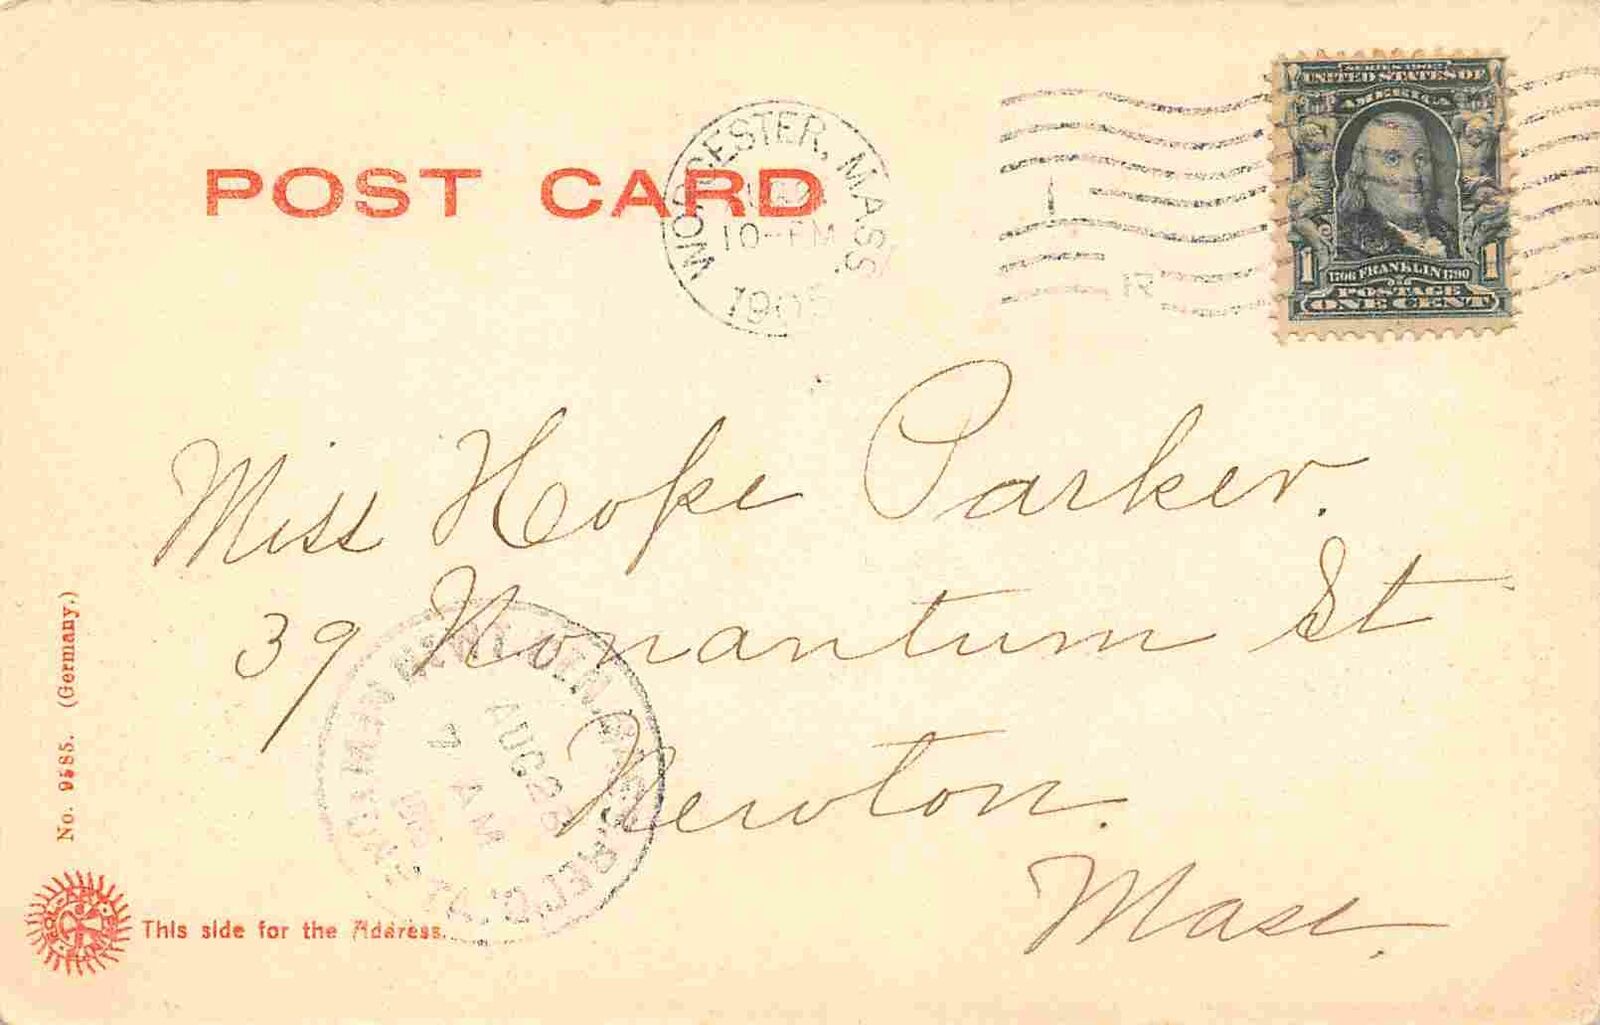 SERIES 1902
UNITED STATES OF
AMERICA
1 1
1706 FRANKLIN 1790
POSTAGE
ONE CENT
POST CARD
WORCESTER, MASS.
10-PM
1905
Miss Hope Parker.
39 Nonantum St
Newton.
Mass.
AUG 26
7 AM
REC'D.
No. 9585. (Germany.)
This side for the Address.